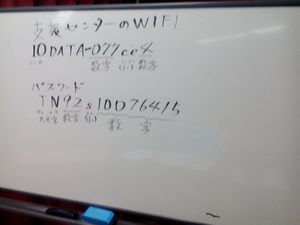 支援センターのWIFI
IODATA-077cc4
数字 数字
パスワード
JN92s10076415
大文字 数字
数字